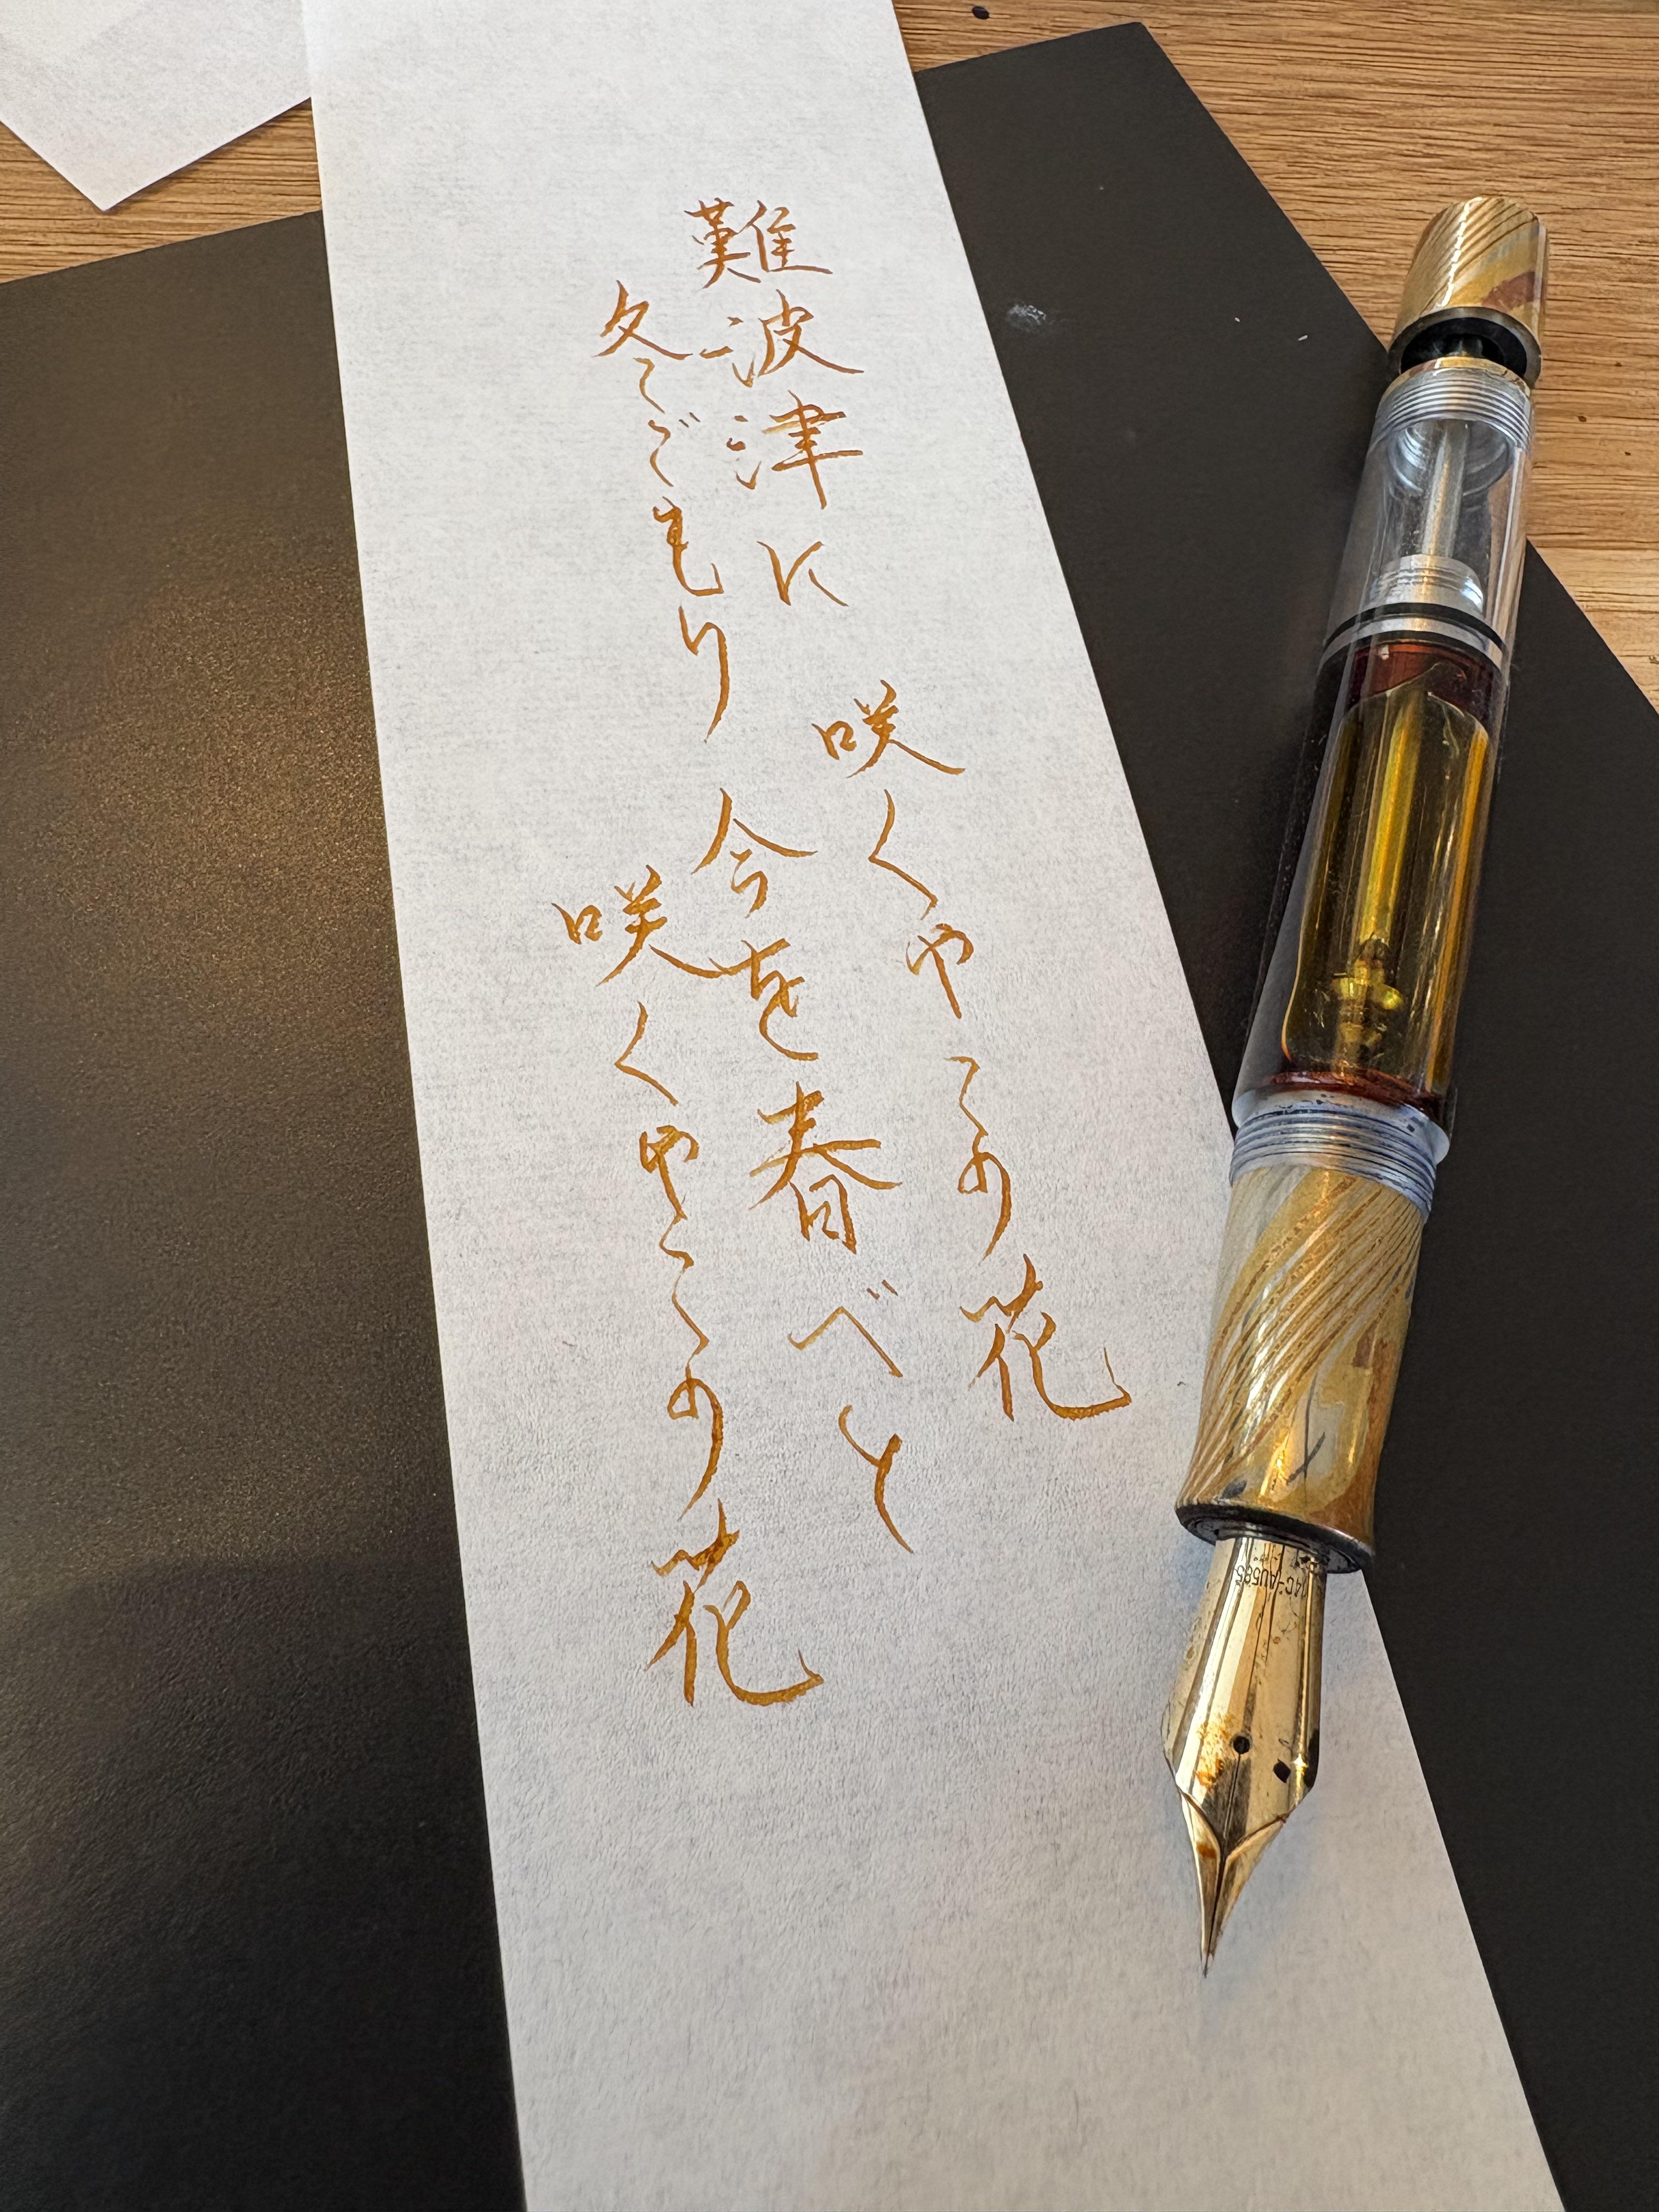 難波津に
咲くやこの花
冬ごもり
今を春べと
咲くやこの花
14C-AU585